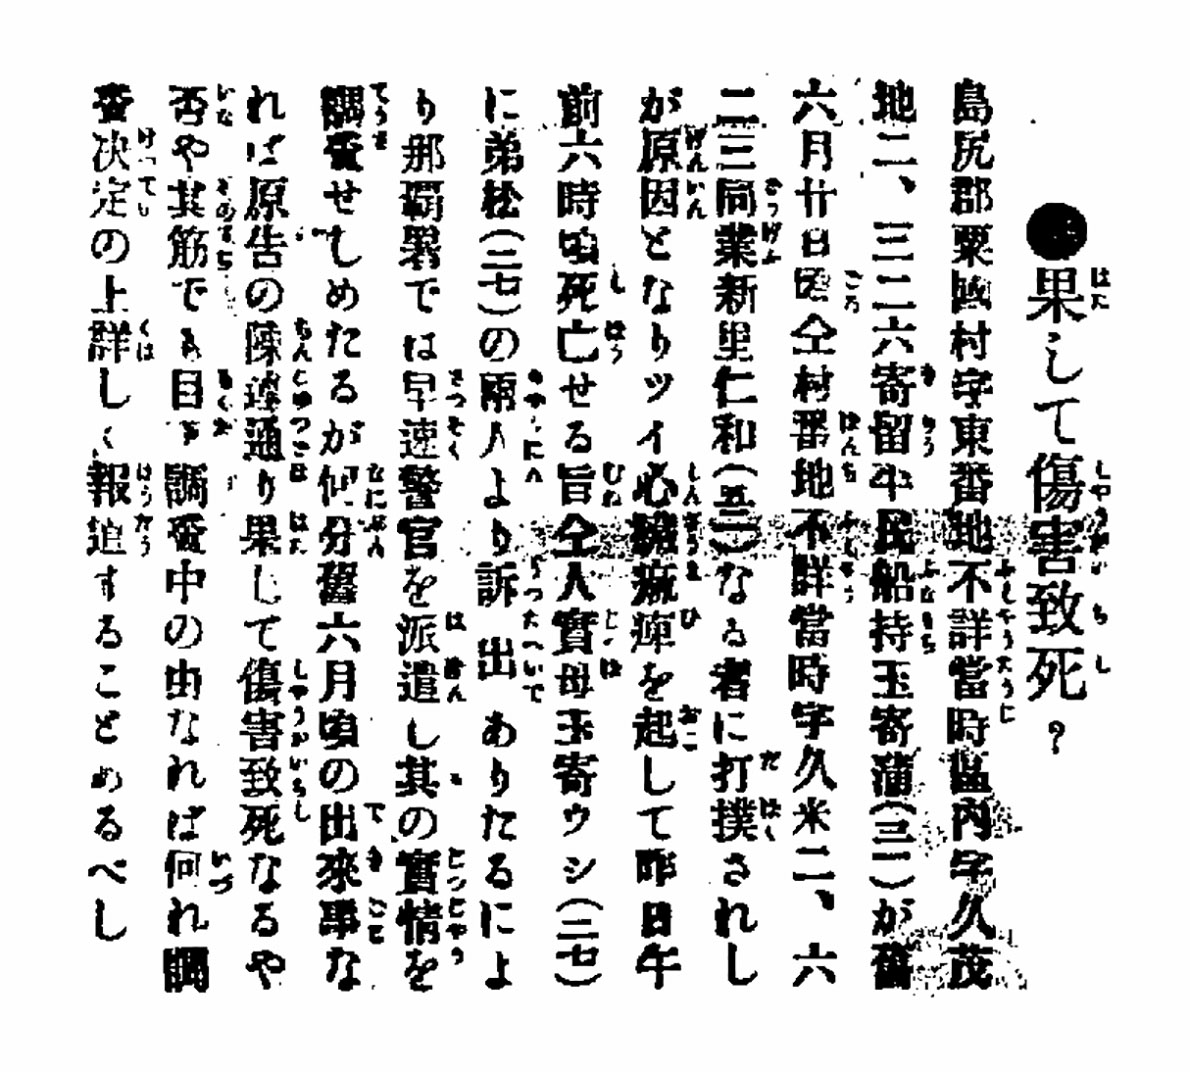 ●果して傷害致死？
島尻郡粟國村字東番地不詳當時區內字久茂
地二、三二六寄留平民船持玉寄蒲（三二）が舊
六月廿日頃仝村番地不詳當時字久米二、六
二三同業新里仁和（五二）なる者に打撲されし
が原因となりツイ心臟痲痺を起して昨日午
前六時頃死亡せる旨仝人實母玉寄ウシ（二七）
に弟松（二七）の兩人より訴出ありたるによ
り那覇署では早速警官を派遣し其の實情を
調査せしめたるが何分舊六月頃の出來事な
れば原告の陳述通り果して傷害致死なるや
否や其筋でも目下調査中の由なれば何れ調
査决定の上詳しく報道することあるべし